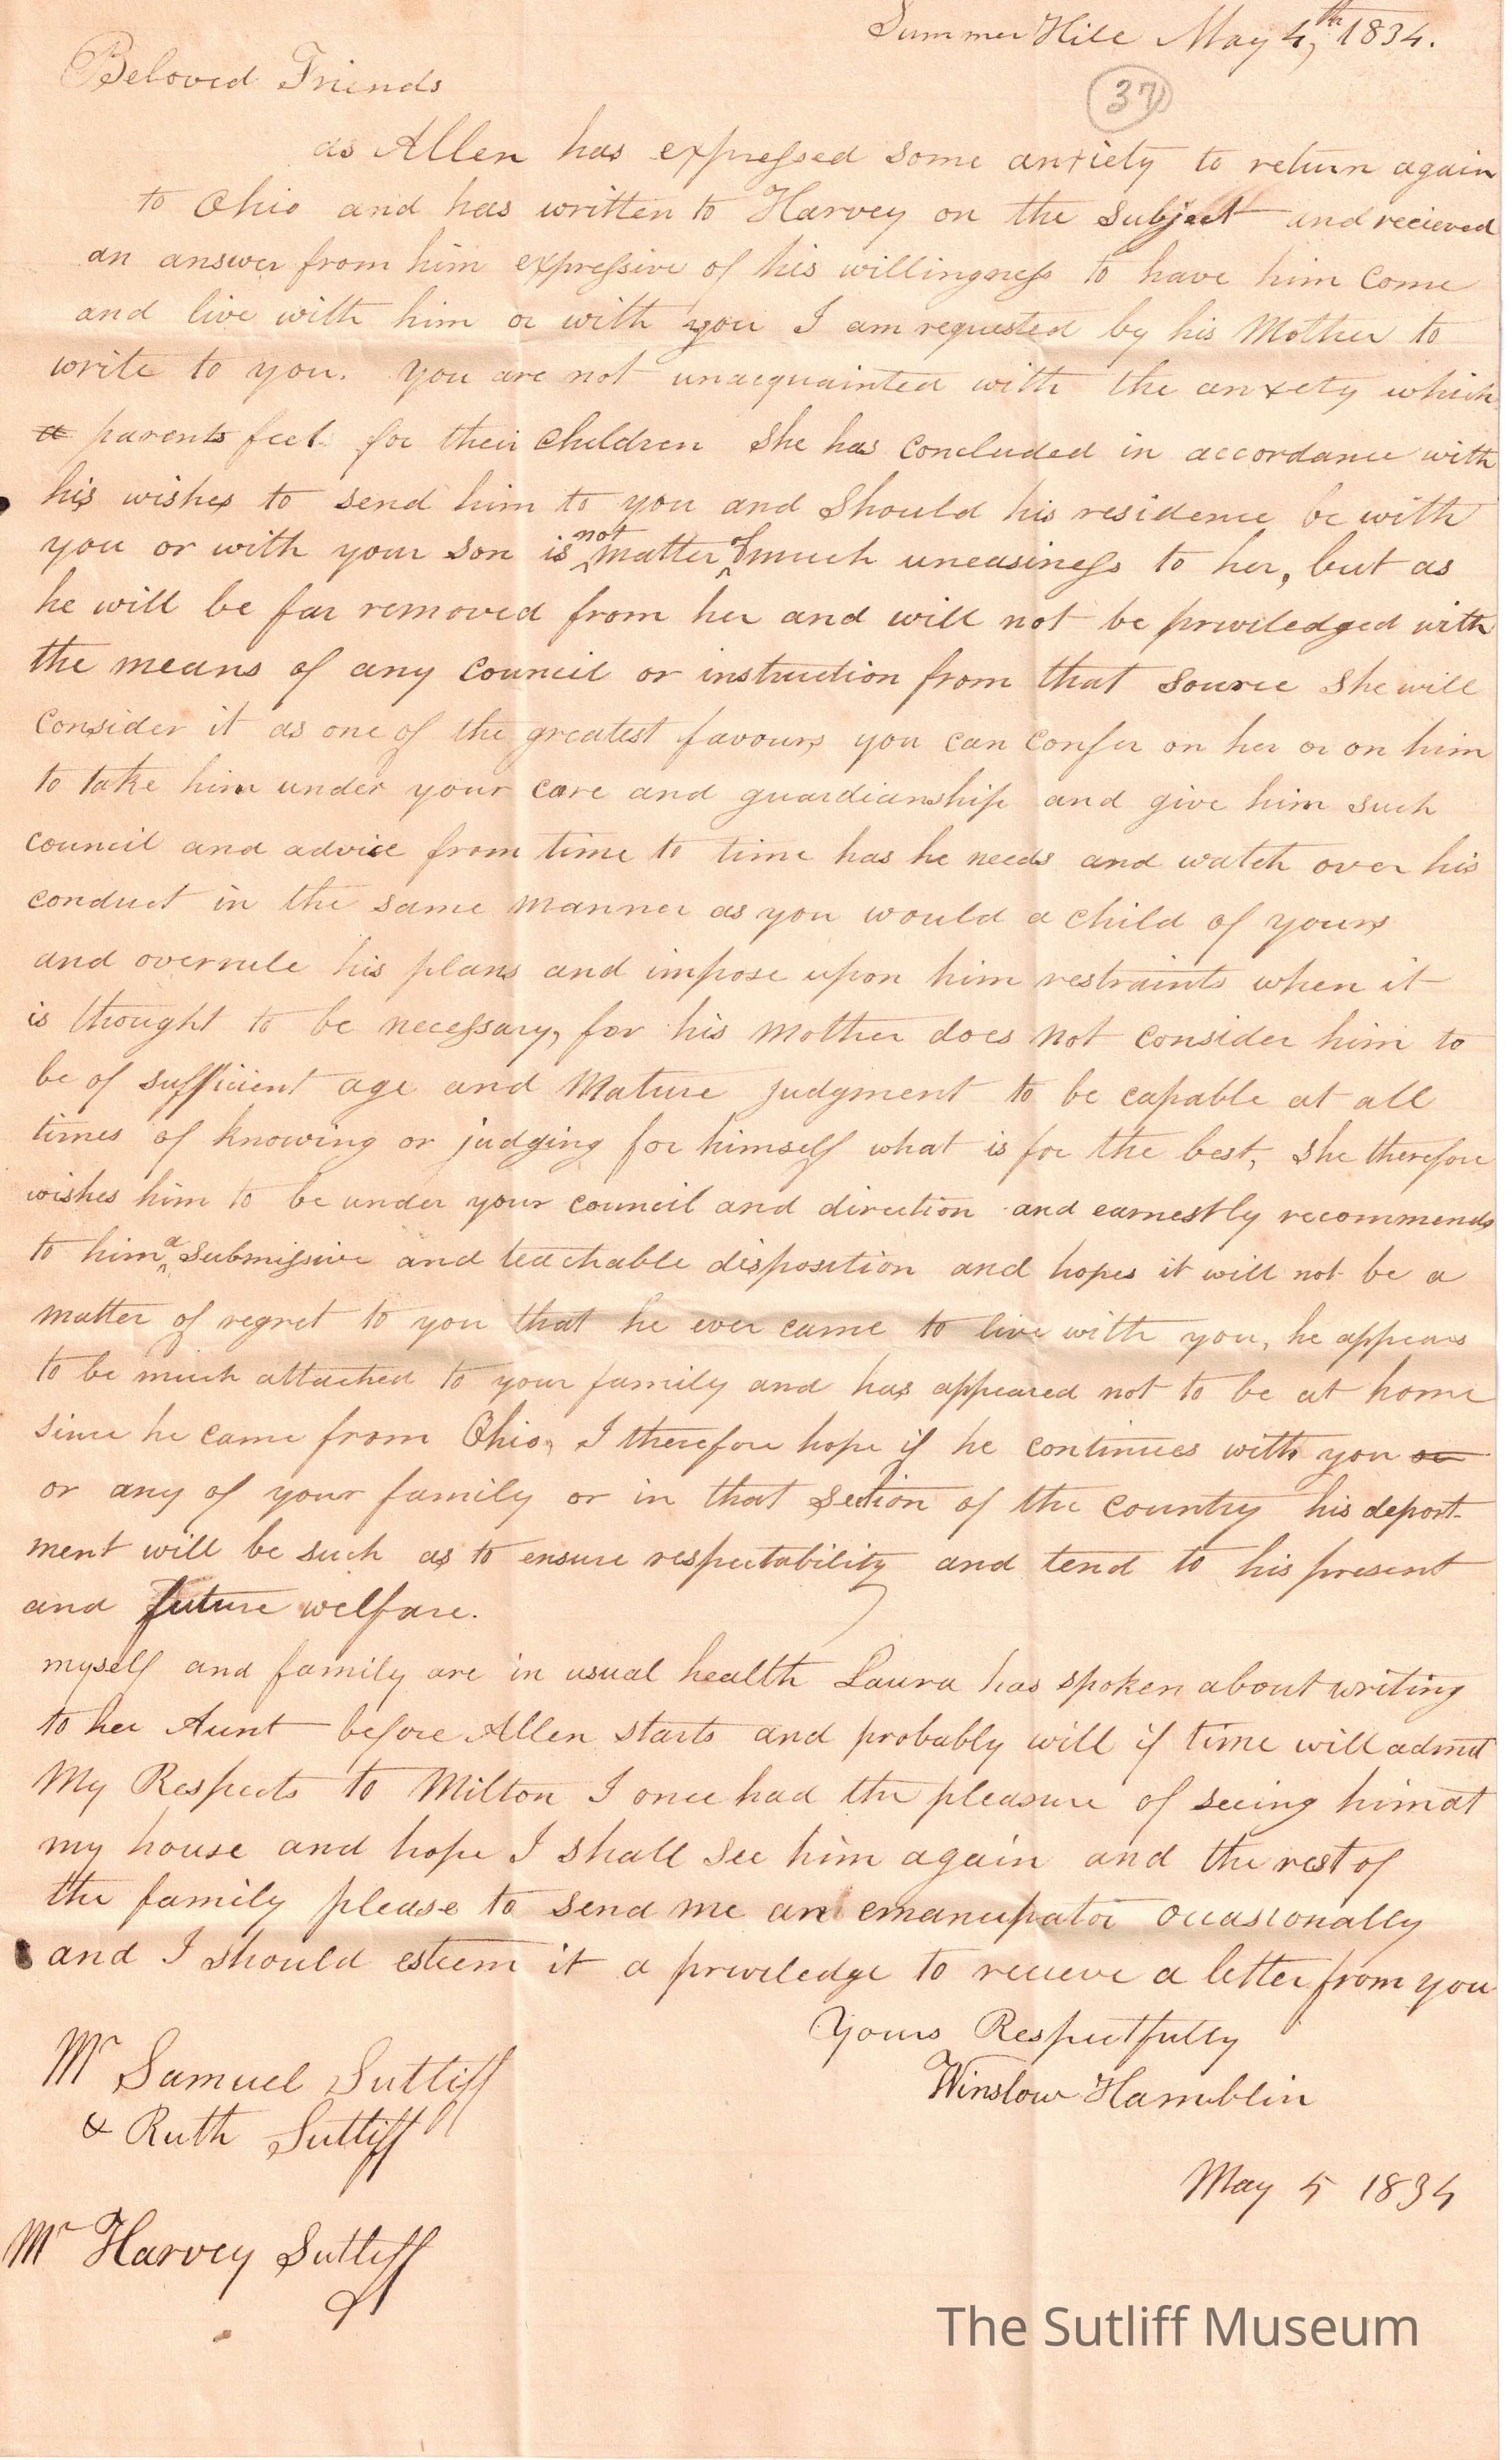 Summer Hill May 4th, 1834.
37
Beloved Friends
as Allen has expressed some anxiety to return again
to Ohio and has written to Harvey on the Subject and recieved
an answer from him expressive of his willingness to have him Come
and live with him or with you I am requested by his Mother to
write to you. you are not unacquainted with the anxiety which
a parents feel for their children She has concluded in accordance with
his wishes to send him to you and Should his residence be with
you or with your son is not matter of much uneasiness to her, but as
he will be far removed from her and will not be priviledged with
the means of any council or instruction from that source She will
consider it as one of the greatest favours you can confer on her or on him
to take him under your care and guardianship and give him such
council and advice from time to time has he needs and watch over his
conduct in the same manner as you would a child of yours
and overrule his plans and impose upon him restraints when it
is thought to be necessary, for his Mother does not consider him to
be of sufficient age and Mature judgment to be capable at all
times of knowing or judging for himself what is for the best, She therefore
wishes him to be under your council and direction and earnestly recommends
to him a Submissive and teachable disposition and hopes it will not be a
matter of regret to you that he ever came to live with you, he appears
to be much attached to your family and has appeared not to be at home
since he came from Ohio, I therefore hope if he continues with you or
or any of your family or in that Section of the country his deport-
ment will be such as to ensure respectability and tend to his present
and future welfare.
myself and family are in usual health Laura has spoken about writing
to her Aunt before Allen starts and probably will if time will admit
My Respects to Milton I once had the pleasure of seeing him at
my house and hope I shall see him again and the rest of
the family please to send me an emancipator occasionally
and I should esteem it a priviledge to recieve a letter from you
Yours Respectfully
Winslow Hamblin
Mr Samuel Sutliff
& Ruth Sutliff
May 5 1834
Mr Harvey Sutliff
The Sutliff Museum